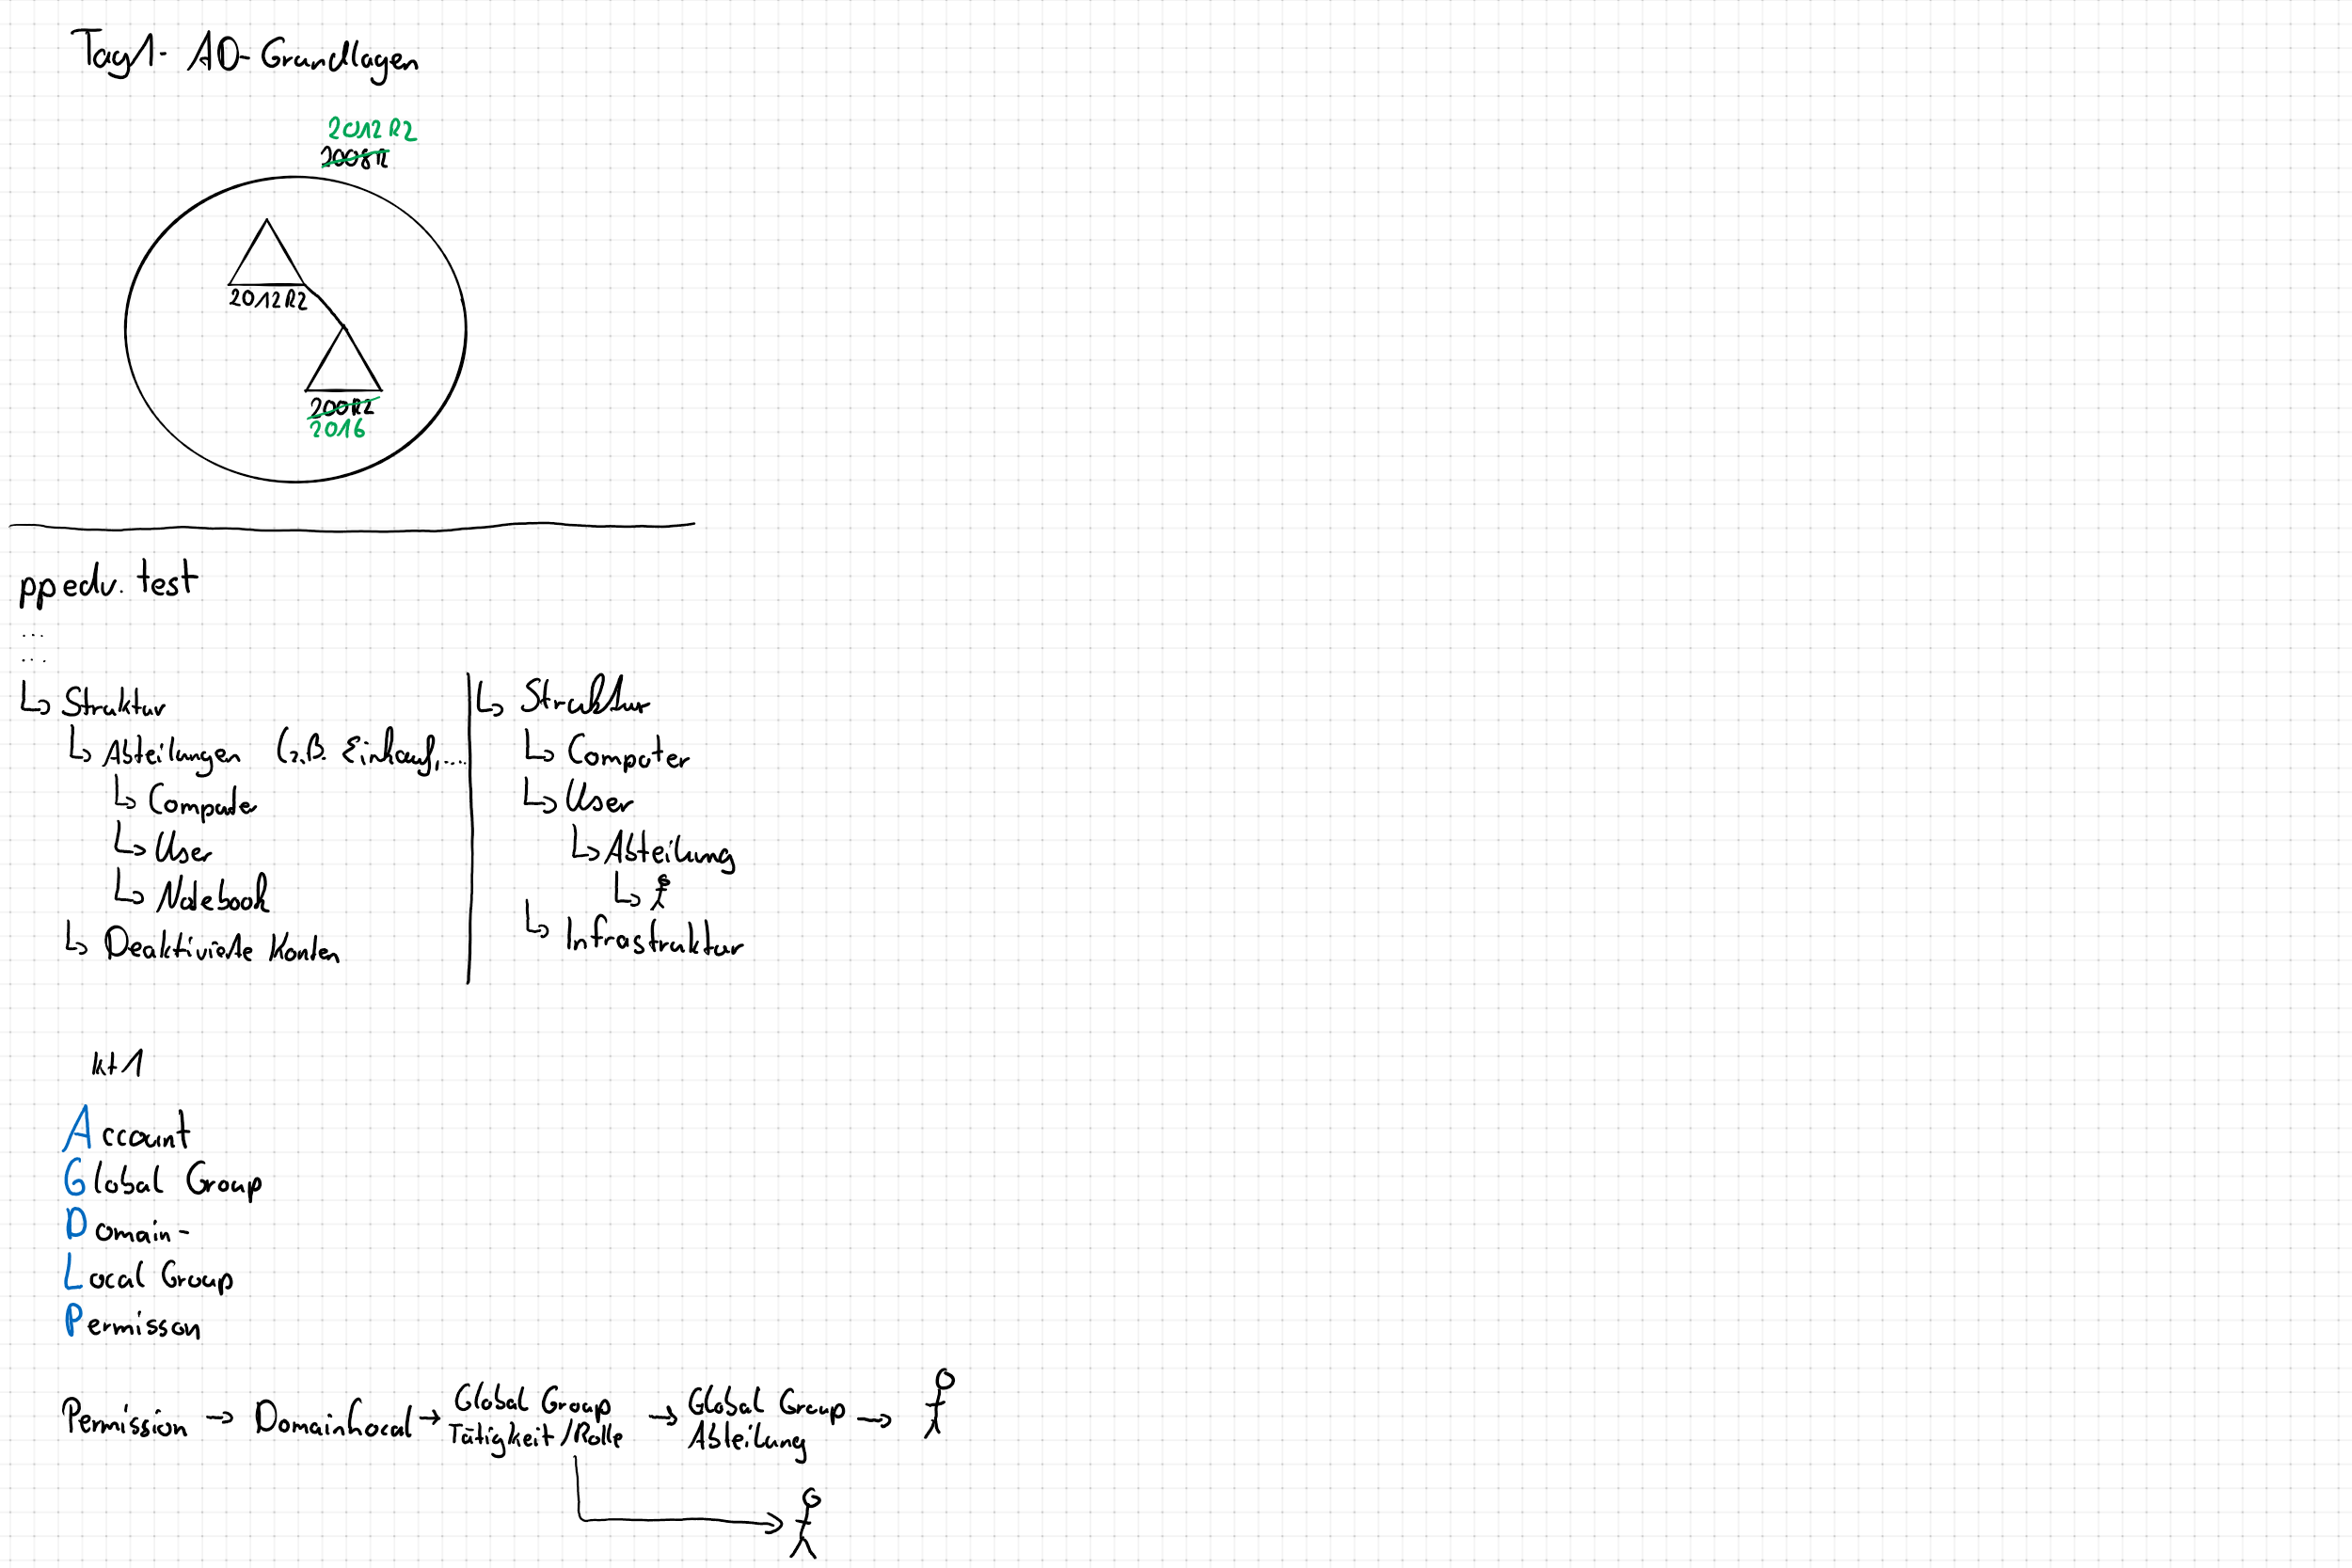 Tag1- AD-Grundlagen
2012R2
2008R2
2012R2
200R2
2016
ppedv.test
...
...
Struktur
Abteilungen (z.B. Einkauf,....
Computer
User
Notebook
Deaktivierte Konten
Struktur
Computer
User
Abteilung
Infrastruktur
kt1
Account
Global Group
Domain-
Local Group
Permisson
Permission → DomainLocal → Global Group Tätigkeit/Rolle → Global Group Abteilung →